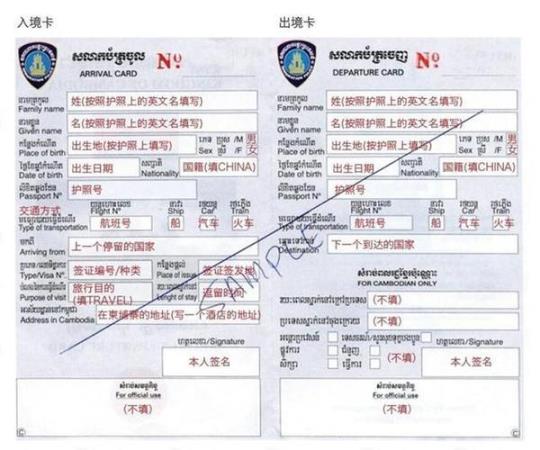 入境卡
សលាកប័ត្រចូល
No
ARRIVAL CARD
នាមត្រកូល
Family name
姓(按照护照上的英文名填写)
នាមខ្លួន
Given name
名(按照护照上的英文名填写)
Place of birth
出生地(按护照上填写)
ភេទ ប្រុស /M 男
Sex ស្រី /F 女
Date of birth
出生日期
សញ្ជាតិ
Nationality
国籍(填CHINA)
Passport Nº
护照号
交通方式
Flight Nº
Ship
Car
Train
Type of transportation
航班号
船
汽车
火车
មកពី
Arriving from
上一个停留的国家
Type/Visa Nº
签证编号/种类
Place of issue
签证签发地
Purpose of visit
旅行目的
(填TRAVEL)
Lenght of stay
逗留时间
Address in Cambodia
在柬埔寨的地址(写一个酒店的地址)
ហត្ថលេខា/Signature
本人签名
សំរាប់មន្ត្រី
For official use
(不填)
出境卡
សលាកប័ត្រចេញ
No
DEPARTURE CARD
នាមត្រកូល
Family name
姓(按照护照上的英文名填写)
នាមខ្លួន
Given name
名(按照护照上的英文名填写)
Place of birth
出生地(按护照上填写)
ភេទ ប្រុស /M 男
Sex ស្រី /F 女
Date of birth
出生日期
សញ្ជាតិ
Nationality
国籍(填CHINA)
Passport Nº
护照号
Flight Nº
Ship
Car
Train
Type of transportation
航班号
船
汽车
火车
Destination
下一个到达的国家
FOR CAMBODIAN ONLY
(不填)
(不填)
(不填)
ហត្ថលេខា/Signature
本人签名
For official use
(不填)
SAMPLE